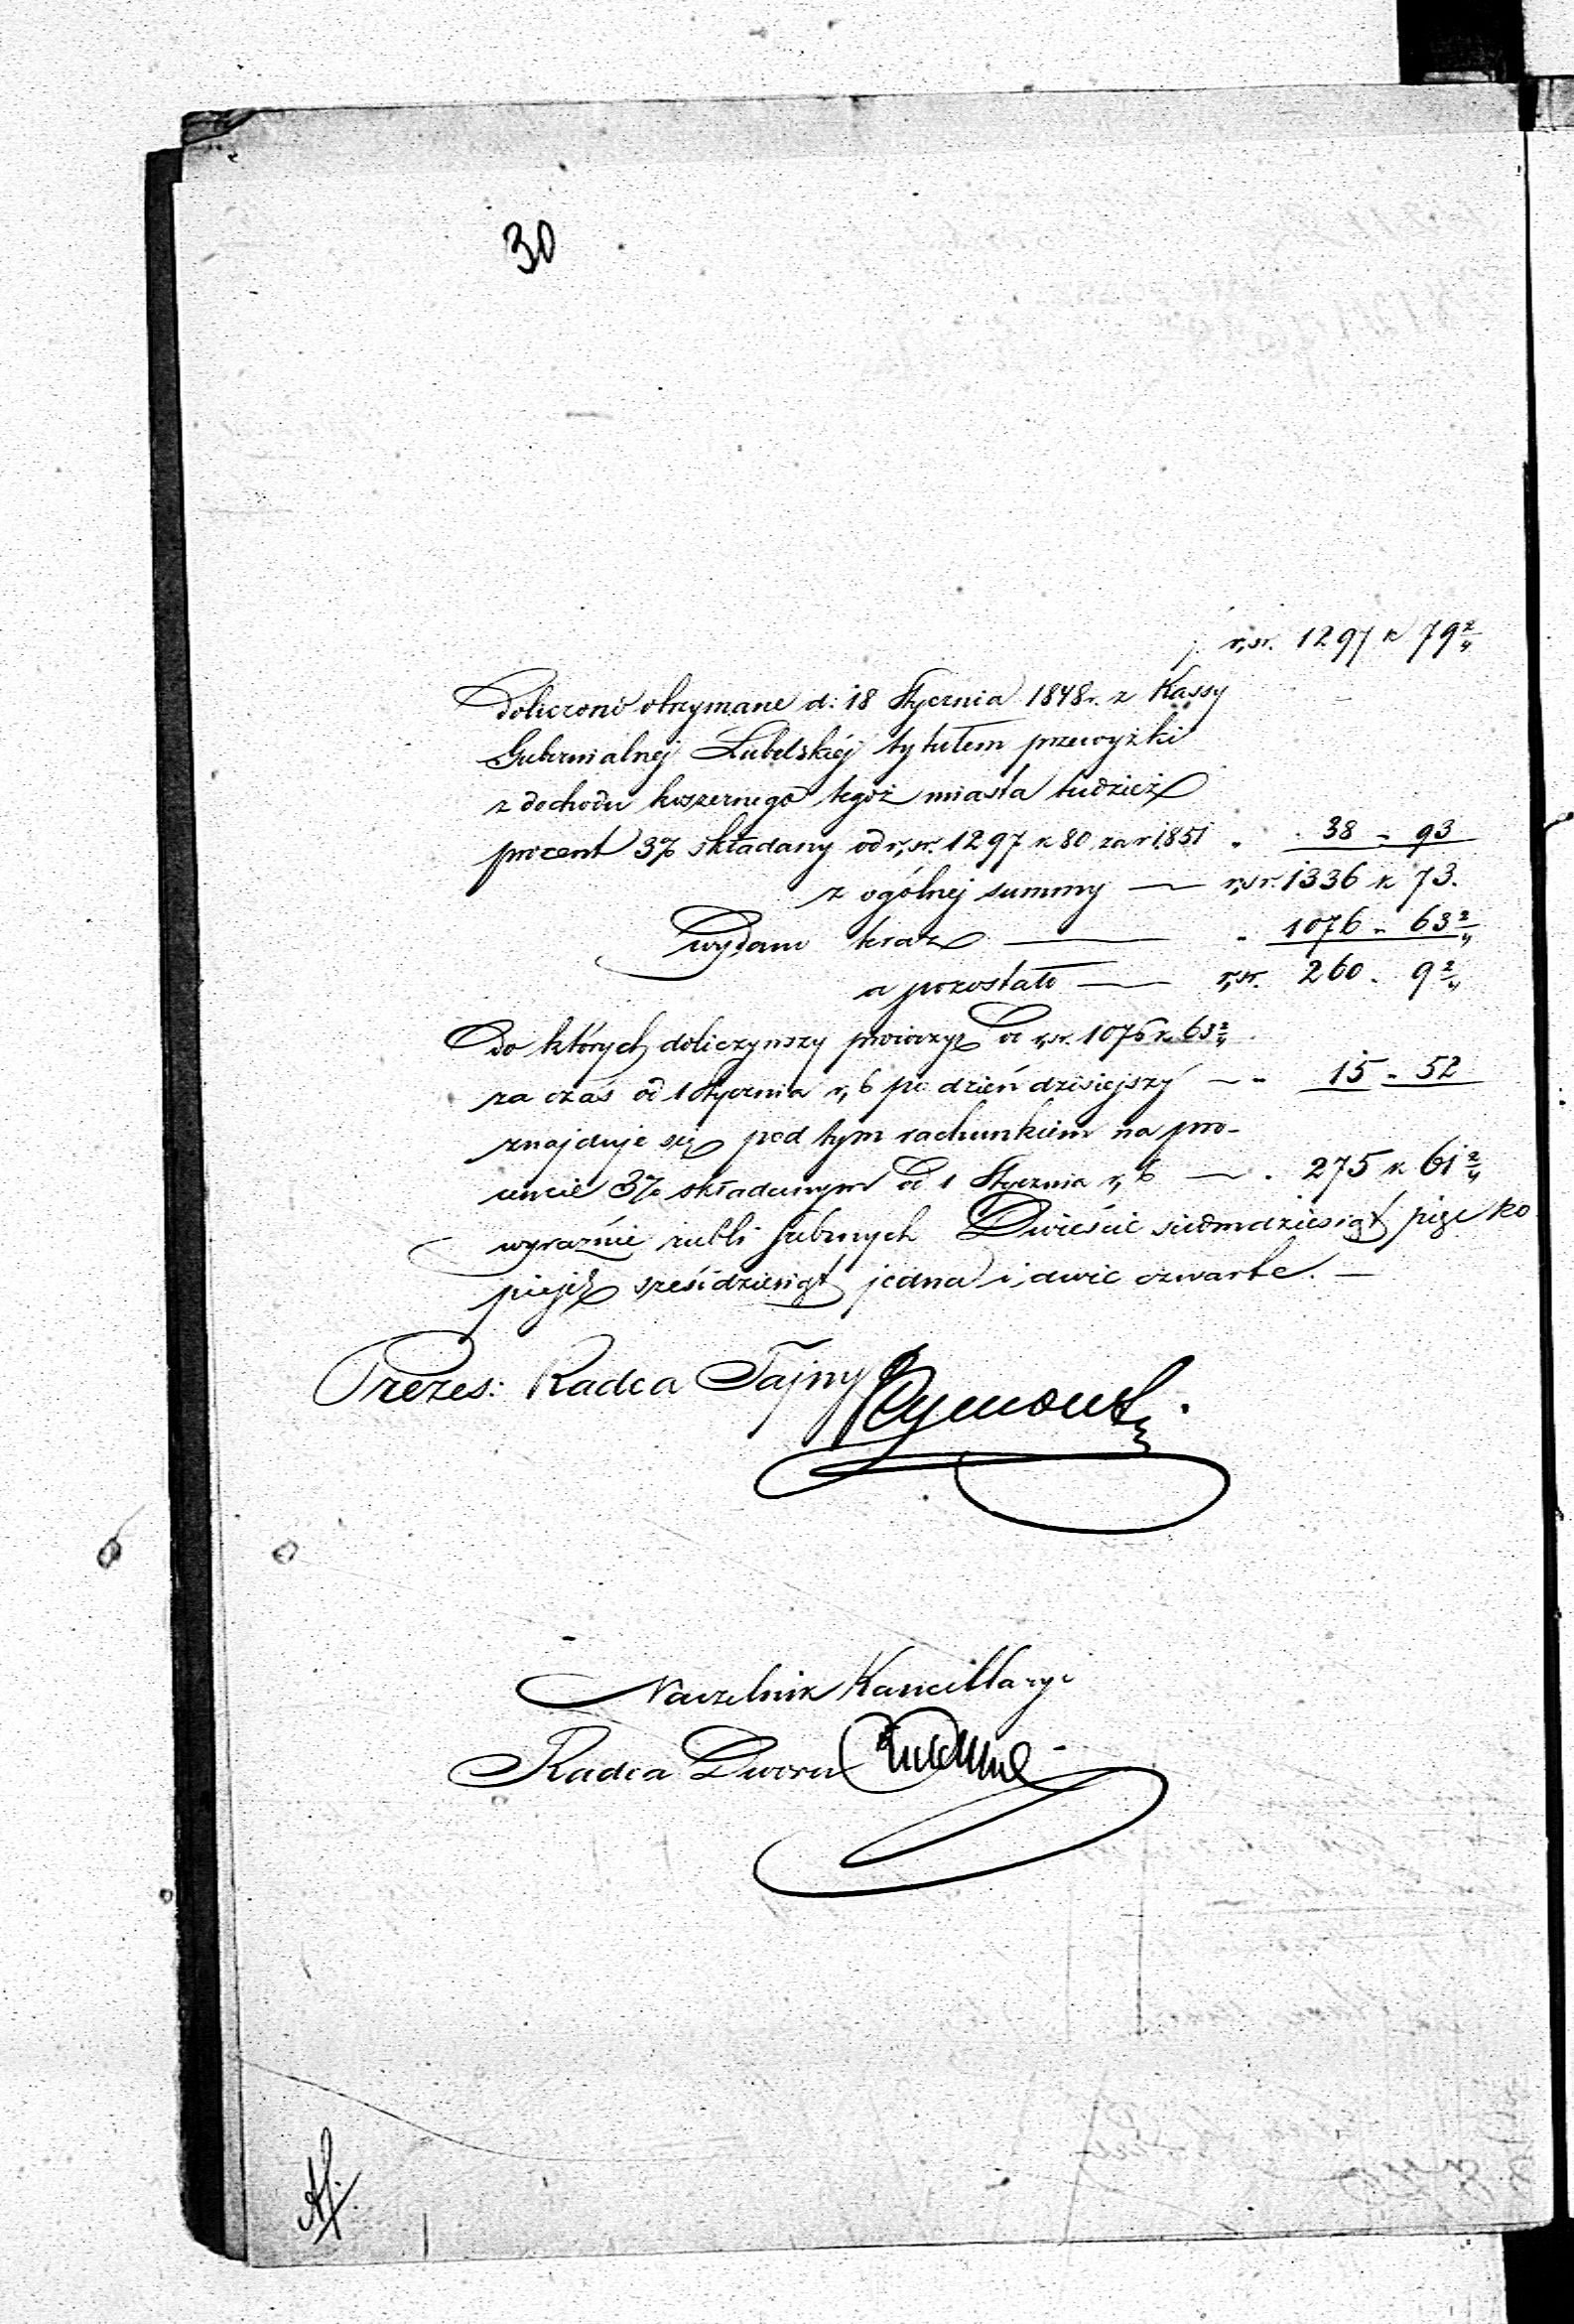 30
r,sr. 1297 k 79 2/4
Doliczono otrzymane d: 18 Stycznia 1848 r. z Kassy
Gubernialnej Lubelskiéj tytułem przewyżki
z dochodu koszernego tegoż miasta tudzież
procent 3% składany od r,sr. 1297 k 80, za r 1851 " 38 " 93
z ogólnej summy — r,sr. 1336 k 73.
Wydano teraz — " 1076 " 63 2/4
a pozostało — r,sr. 260 " 9 2/4
Do których doliczywszy od r,sr. 1076 k 63 2/4
za czas od 1 Stycznia r, b po dzień dzisiejszy — " 15 " 52
znajduje się pod tym rachunkiem na pro-
cencie 3% składanym od 1 Stycznia r, b — " 275 k 61 2/4
wyraźnie rubli srebrnych Dwieście siedmdziesiąt pięć ko
piejek sześćdziesiąt jedna i dwie czwarte. —
Prezes: Radca Tajny
Naczelnik Kancellaryi
Radca Dworu